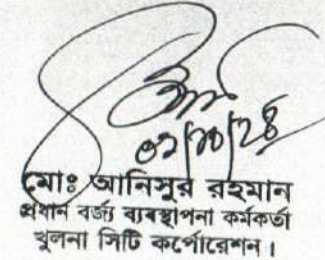 মোঃ আনিসুর রহমান
প্রধান বর্জ্য ব্যবস্থাপনা কর্মকর্তা
খুলনা সিটি কর্পোরেশন।